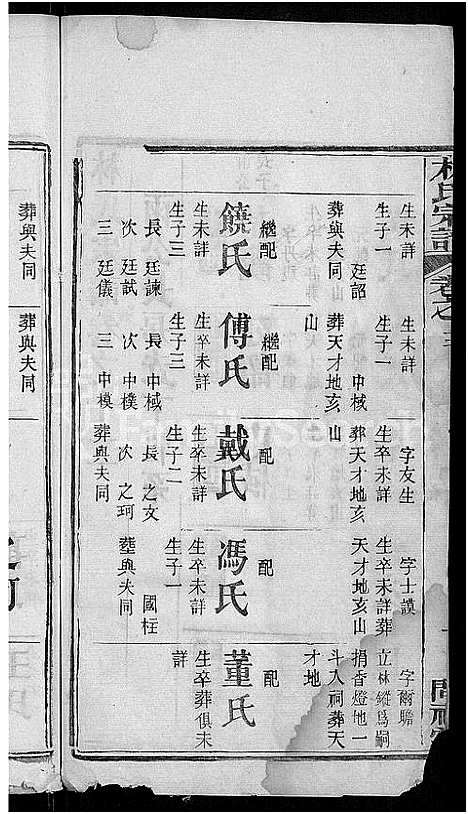 林氏宗譜
卷之
生未詳
生子一
廷詔
葬與夫同
繼配
饒氏
生未詳
生子三
長 廷諫
次 廷試
三 廷儀
生未詳
生子一
中棫
葬天才地亥
山
繼配
傅氏
生卒未詳
生子三
長 中棫
次 中樸
三 中模
字友生
生卒未詳
葬天才地亥
山
配
戴氏
生卒未詳
生子二
長 之文
次 之珂
葬與夫同
字士謨
生卒未詳葬
天才地亥山
配
馮氏
生卒未詳
生子一
國柱
葬與夫同
字爾瞻
立林鏦爲嗣
捐香燈地一
斗入祠葬天
才地
配
董氏
生卒葬俱未
詳
葬與夫同
葬與夫同